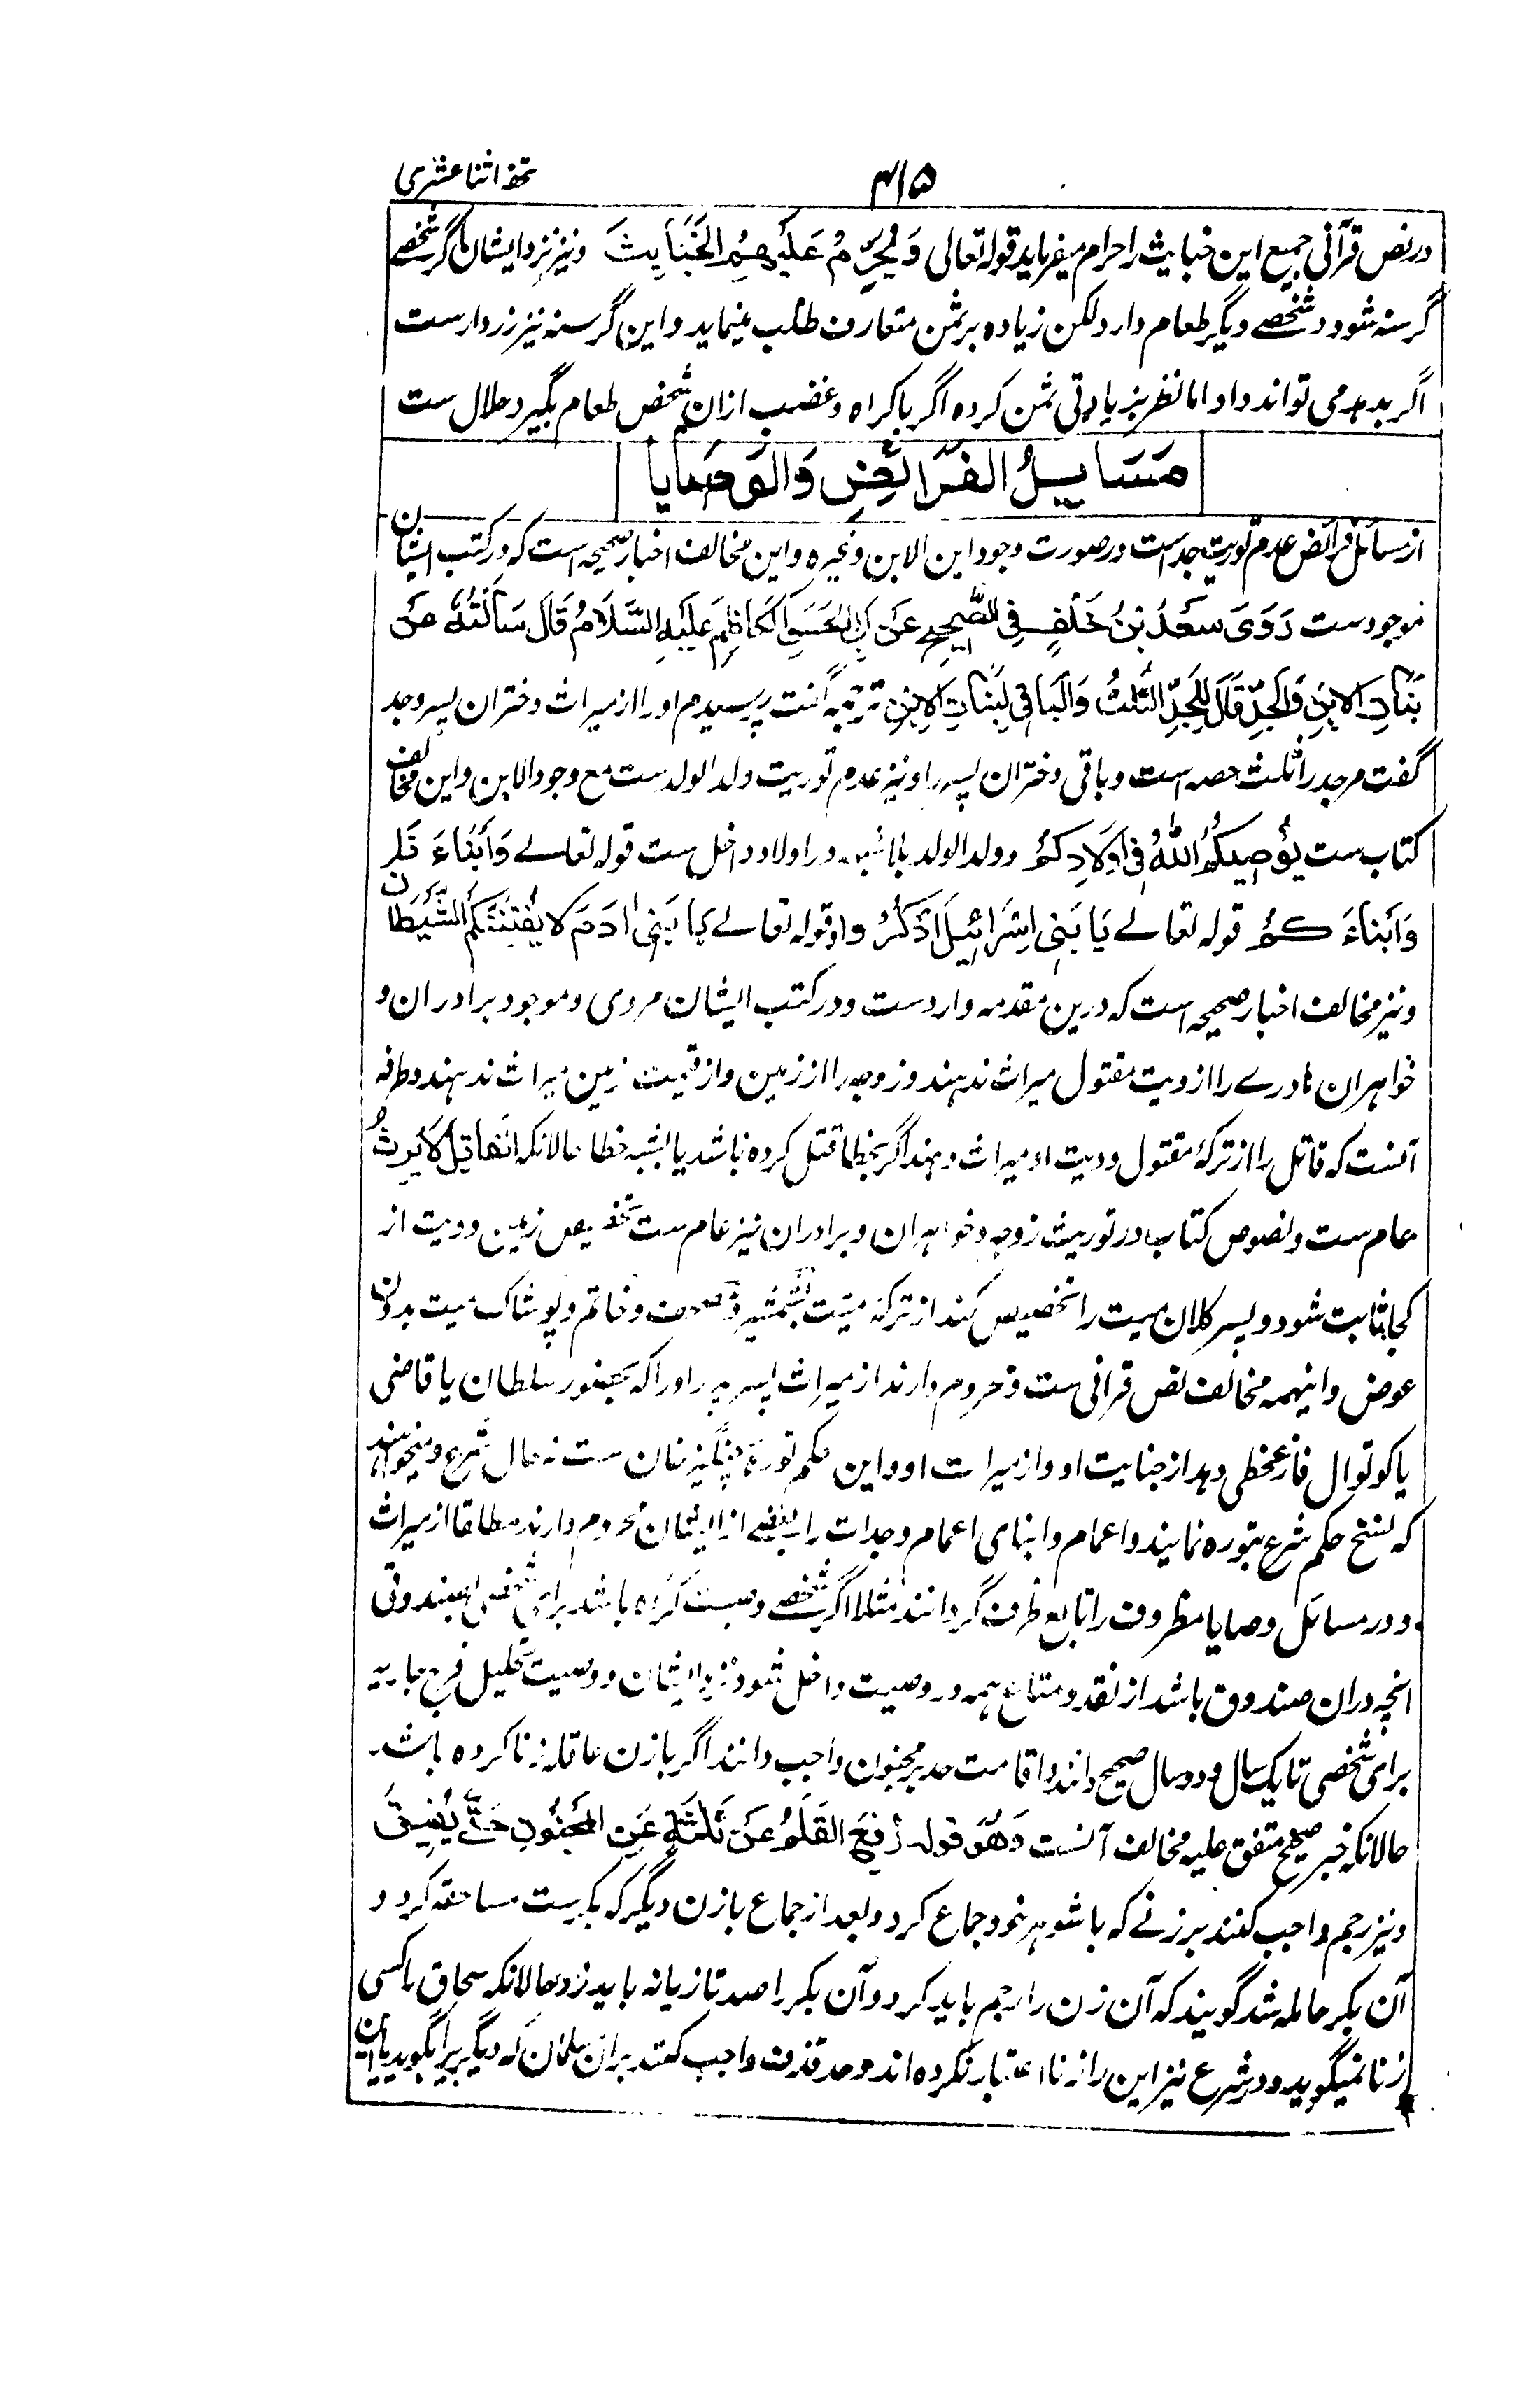 تحفه اثنا عشری
۴۱۵
در نص قرآنی جمیع این خبایث را حرام میفرماید قوله تعالی وَیُحَرِّمُ عَلَیْهِمُ الْخَبَایِثَ ونیز نزد ایشان اگر شخصے
گرسنه شود و شخصے دیگر طعام دارد لکن زیاده بر ثمن متعارف طلب مینماید و این گرسنه نیز زردار ست
اگر بدهد می تواند داد اما نظر بزیادتی ثمن کرده اگر باکراه و غضب ازان شخص طعام بگیرد حلال ست
مَسَایِلُ الفَرَائِضِ وَالوَصَایَا
از مسائل فرائض عدم توریث جد است در صورت وجود ابن الابن وغیره واین مخالف اخبار صحیحه است که در کتب ایشان
موجود ست رَوَی سَعْدُ بْنُ خَلَفٍ فِی الصَّحِیْحِ عَنْ اَبِی الْحَسَنِ الْکَاظِمِ عَلَیْهِ السَّلَامُ قَالَ سَاَلْتُهُ عَنْ
بَنَاتِ الِابْنِ وَالْجَدِّ قَالَ لِلْجَدِّ الثُّلُثُ وَالْبَاقِی لِبَنَاتِ الِابْنِ ترجمه آنست پرسیدم او را از میراث دختران پسر وجد
گفت مر جد را ثلث حصه است و باقی دختران پسر را ونیز عدم توریث ولد الولد ست مع وجود الابن واین مخالف
کتاب ست یُوْصِیْکُمُ اللّٰهُ فِی اَوْلَادِکُمْ وولد الولد بلا شبهه در اولاد داخل ست قوله تعالے وَاَبْنَاءَ نَا
وَاَبْنَاءَ کُمْ قوله تعالے یَا بَنِی اِسْرَائِیْلَ اذْکُرُوا وقوله تعالے یَا بَنِی اٰدَمَ لَا یَفْتِنَنَّکُمُ الشَّیْطَانُ
ونیز مخالف اخبار صحیحه است که درین مقدمه وارد ست و در کتب ایشان مروی و موجود برادران و
خواهران مادرے را از دیت مقتول میراث ندهند وزوجه را از زمین واز قیمت زمین میراث ندهند وطرفه
آنست که قاتل را از ترکۀ مقتول ودیت او میراث دهند اگر بخطا قتل کرده باشد یا بشبه خطا حالانکه اَلْقَاتِلُ لَا یَرِثُ
عام ست ونصوص کتاب در توریث زوجه وخواهران وبرادران نیز عام ست تخصیص زمین ودیت از
کجا ثابت شود وپسر کلان میت را تخصیص کنند از ترکه میّت بشمشیر ومصحف وخاتم وپوشاک میت بدون
عوض واینهمه مخالف نص قرانی ست ومحروم دارند از میراث پسر پدر را که بحضور سلطان یا قاضی
یا کوتوال فارغخطی دهد از جنایت او واز میراث او واین حکم تورۀ چنگیز خان ست نه حال شرع ومیخواهند
که نسخ حکم شرع بتوره نمایند واعمام وابنای اعمام وجدات را بعضے از ایشان محروم دارند مطلقا از میراث
ودر مسائل وصایا مظروف را تابع ظرف گردانند مثلا اگر شخصے وصیت کرده باشد برای شخصی بصندوقی
انچه دران صندوق باشد از نقد ومتاع همه در وصیت داخل شود نزد ایشان ووصیت تحلیل فرج جاریه
برای شخصی تا یک سال ودو سال صحیح دانند واقامت حد بر مجنون واجب دانند اگر بازن عاقله زنا کرده باشد
حالانکه خبر صحیح متفق علیه مخالف آنست وَهُوَ قوله رُفِعَ الْقَلَمُ عَنْ ثَلٰثَةٍ عَنِ الْمَجْنُونِ حَتّٰی یُفِیْقَ
ونیز رجم واجب کنند بر زنے که باشوهر خود جماع کرد وبعد از جماع بازن دیگر که بکر ست مساحقه کرد و
آن بکر حامله شد گویند که آن زن را رجم باید کرد وآن بکر را صد تازیانه باید زد حالانکه سحاق را کسی
زنا نمیگوید ودر شرع نیز این را زنا اعتبار نکرده اند وحد قذف واجب کنند بران مسلمان که دیگریرا بگوید یا ابن